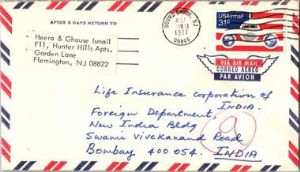 AFTER 5 DAYS RETURN TO
Heera & Ghouse Ismail
F11, Hunter Hills Apt.
Gordon Lane
Flemington, NJ 08822
1977
USAirmail
31c
VIA AIR MAIL
CORREO AEREO
PAR AVION
Life Insurance Corporation of
INDIA.
Foreign Department,
New India Bldg
Swami Vivekanand Road
Bombay 400 054.
INDIA